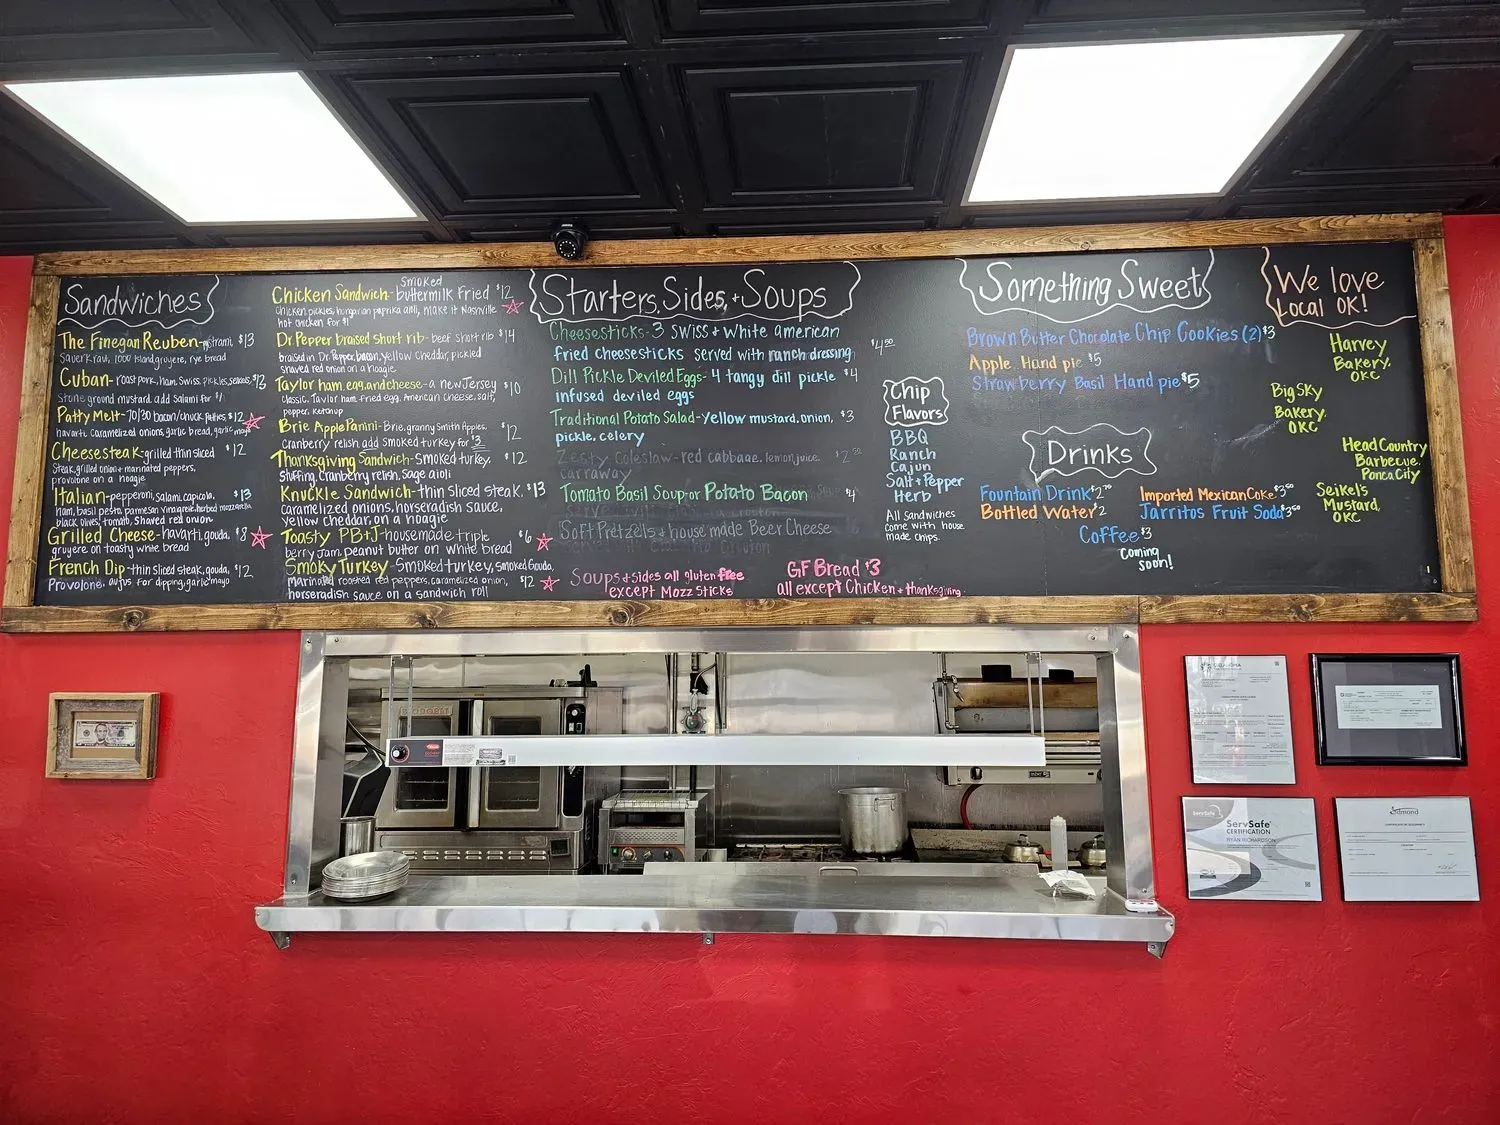 Sandwiches
The Finegan Reuben-pastrami, $13
Sauerkraut, 1000 island, gruyere, rye bread
Cuban-roast pork, ham, Swiss, pickles, $13
Stone ground mustard. add Salami for $1
Patty Melt-70/30 bacon/chuck patties, $12
havarti, caramelized onions, garlic bread, garlic mayo
Cheesesteak-grilled thin sliced $12
Steak, grilled onion + marinated peppers,
provolone on a hoagie
Italian-pepperoni, salami, capicola, $13
ham, basil pesto, parmesan vinaigrette, herbed mozzarella
black olives, tomato, shaved red onion
Grilled Cheese-havarti, gouda, $8
gruyere on toasty white bread
French Dip-thin sliced steak, gouda, $12
Provolone, aujus for dipping, garlic mayo
Smoked
Chicken Sandwich-buttermilk Fried $12
Chicken, pickles, hungarian paprika aioli, make it Nashville
hot chicken for $1
Dr Pepper Braised Short rib-beef short rib $14
braised in Dr. Pepper, bacon, yellow cheddar, pickled
shaved red onion on a hoagie
Taylor ham, egg, and cheese-a new Jersey $10
classic. Taylor ham, fried egg, American cheese, salt,
pepper, ketchup
Brie Apple Panini-Brie, granny Smith Apples, $12
Cranberry relish. add smoked turkey for $3
Thanksgiving Sandwich-Smoked turkey, $12
Stuffing, Cranberry relish, Sage aioli
Knuckle Sandwich-thin sliced steak, $13
caramelized onions, horseradish sauce,
yellow cheddar on a hoagie
Toasty PB+J-housemade triple $6
berry Jam, peanut butter on white bread
Smoky Turkey-Smoked turkey, smoked Gouda,
marinated roasted red peppers, caramelized onion, $12
horseradish sauce on a sandwich roll
Starters, Sides, + Soups
Cheesesticks-3 Swiss + white american
fried cheesesticks served with ranch dressing $4.50
Dill Pickle Deviled Eggs-4 tangy dill pickle $4
infused deviled eggs
Traditional Potato Salad-Yellow mustard, onion, $3
pickle, celery
Zesty Coleslaw-red cabbage, lemon juice, $2.50
carraway
Tomato Basil Soup or Potato Bacon $4
Soft Pretzels + house made Beer Cheese
Soups + Sides all gluten free
except Mozz Sticks
GF Bread $3
all except Chicken + thanksgiving
Chip
Flavors
BBQ
Ranch
Cajun
Salt + Pepper
Herb
All sandwiches
come with house
made chips.
Something Sweet
Brown Butter Chocolate Chip Cookies (2) $3
Apple Hand pie $5
Strawberry Basil Hand pie $5
Drinks
Fountain Drink $2.70
Bottled Water $2
Imported Mexican Coke $3.50
Jarritos Fruit Soda $3.50
Coffee $3
Coming
Soon!
We love
Local OK!
Harvey
Bakery,
OKC
Big Sky
Bakery,
OKC
Head Country
Barbecue,
Ponca City
Seikel's
Mustard,
OKC
OKLAHOMA
ServSafe
ServSafe
CERTIFICATION
RYAN RICHARDSON
Edmond
BLODGETT
Hatco